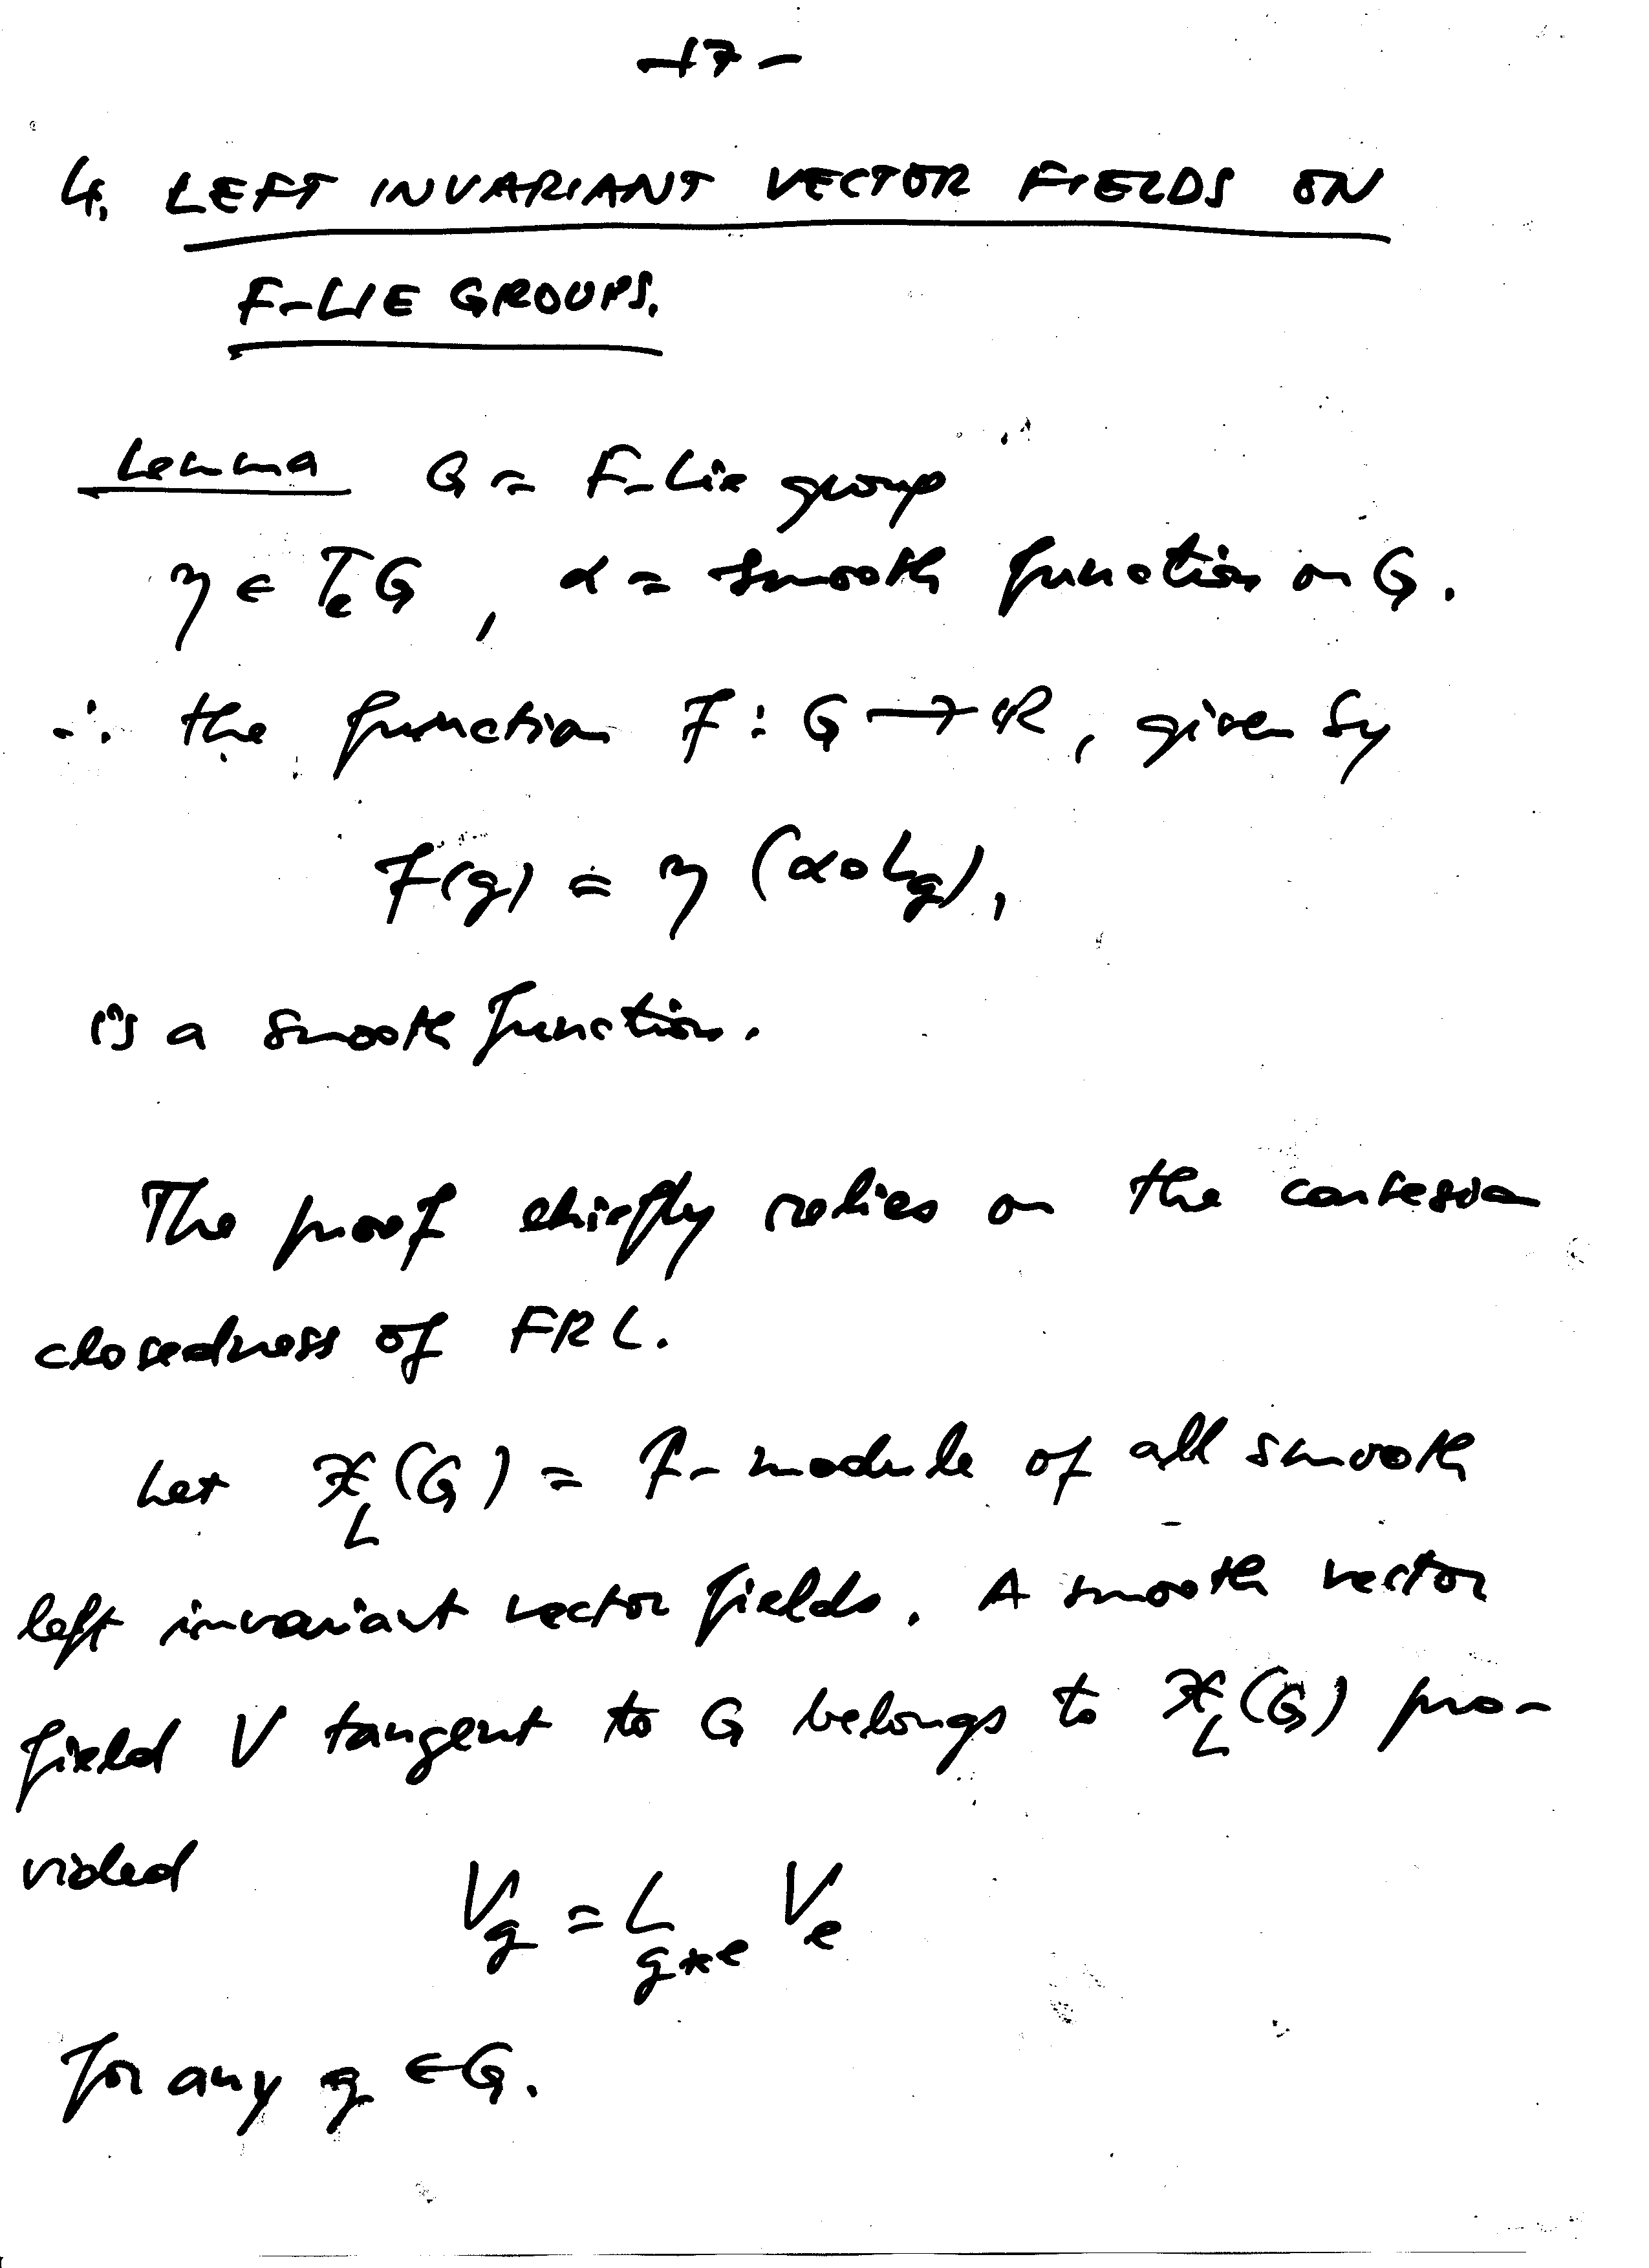 -17-
4. LEFT INVARIANT VECTOR FIELDS ON
F-LIE GROUPS.
Lemma G = F-Lie group
η ∈ TₑG, α = smooth function on G.
∴ the function F : G → ℝ, given by
F(g) = η (α∘L_g),
is a smooth function.
The proof chiefly relies on the cartesian
closedness of FRL.
Let 𝒳_L(G) = F-module of all smooth
left invariant vector fields. A smooth vector
field V tangent to G belongs to 𝒳_L(G) pro-
vided
V_g = L_{g*e} V_e
for any g ∈ G.